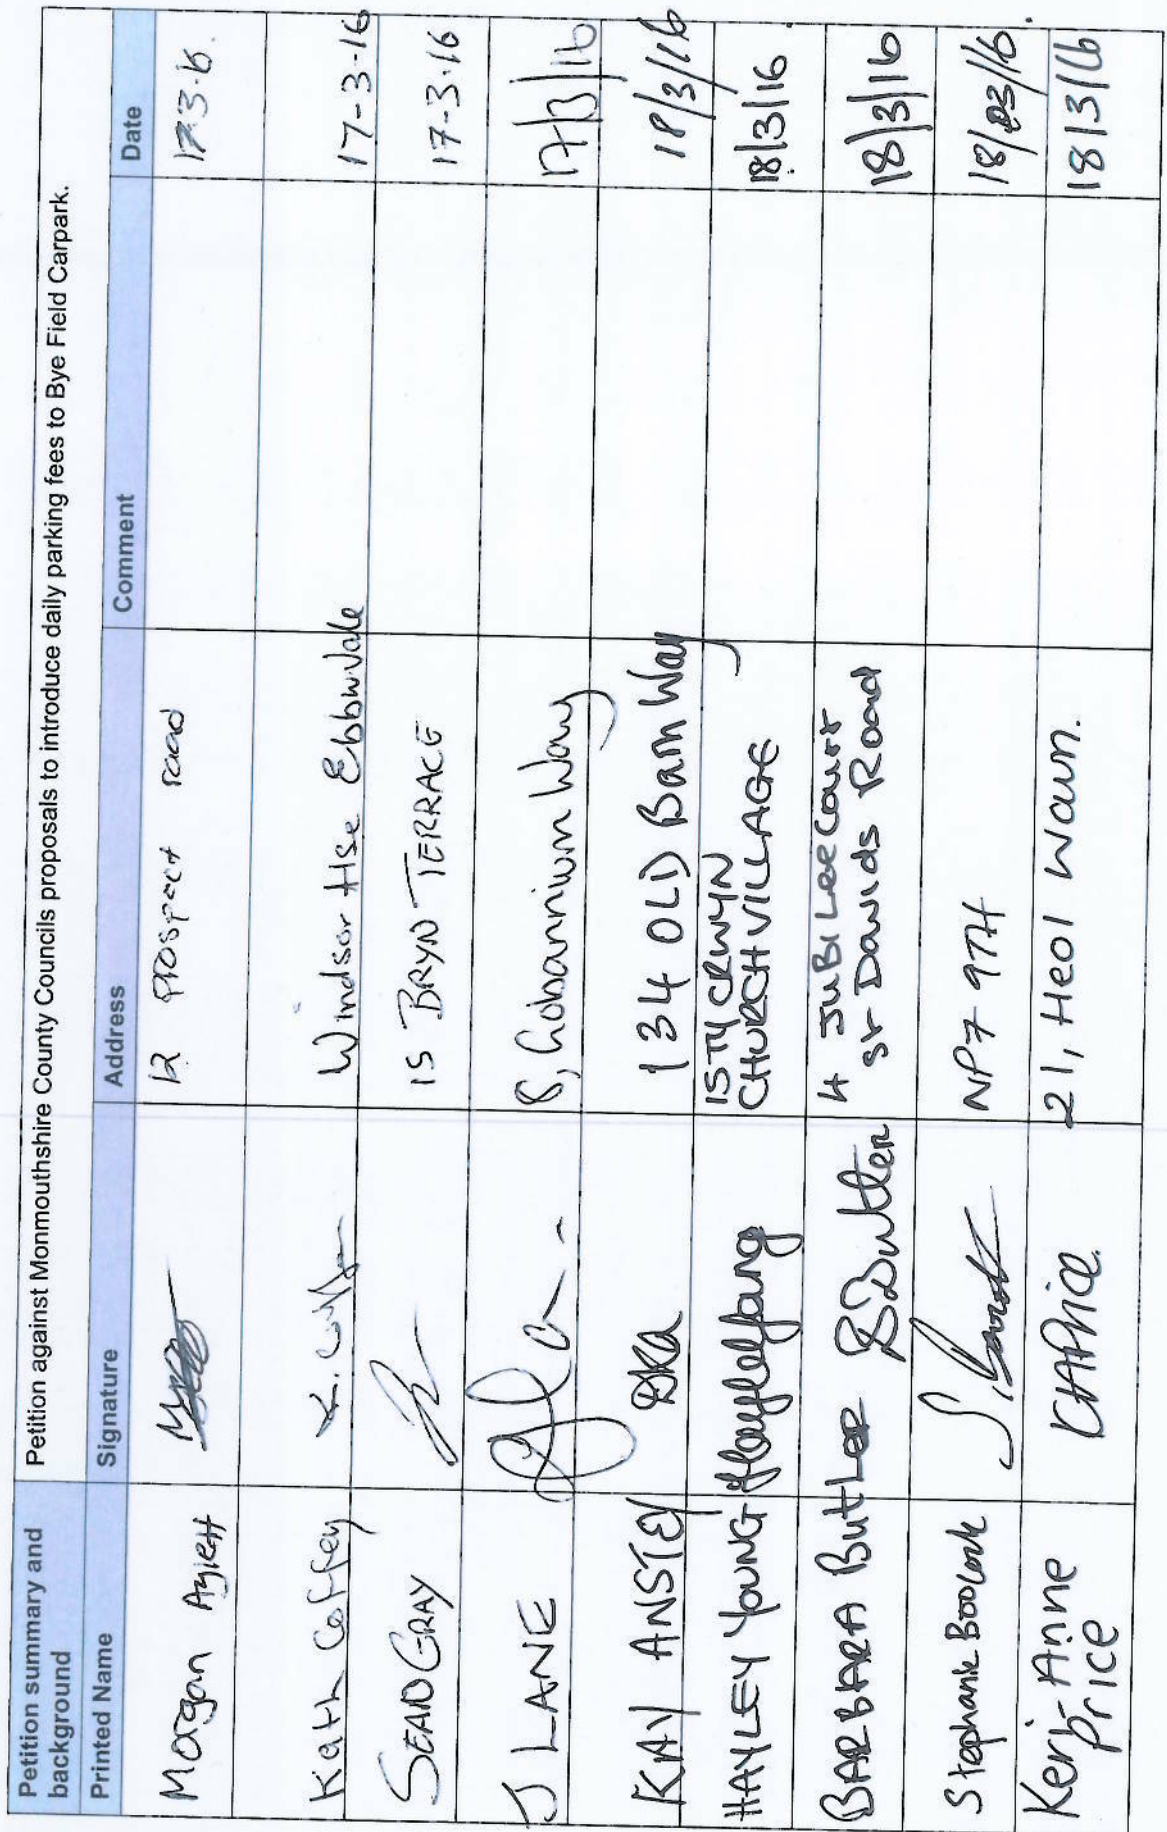 Petition summary and background
Petition against Monmouthshire County Councils proposals to introduce daily parking fees to Bye Field Carpark.
Printed Name Signature Address Comment Date
Morgan 12 prospect road 17.3.16.
Kath Coffey K. Coffey Windsor Hse Ebbw Vale 17-3-16
SEAN GRAY 15 BRYN TERRACE 17-3-16
J LANE 8, Gobannium Way 17/3/16
KAY ANSTEY 134 OLD Barn Way 18/3/16
HAYLEY YOUNG Hayley Young 15 TY CRWYN
CHURCH VILLAGE 18/3/16
BARBARA ButLER B Butler 4 JuBiLee Court
St Davids Road 18/3/16
Stephanie NP7 9TH 18/03/16.
Keri-Anne
Price KAPrice. 21, Heol Waun. 18/3/16